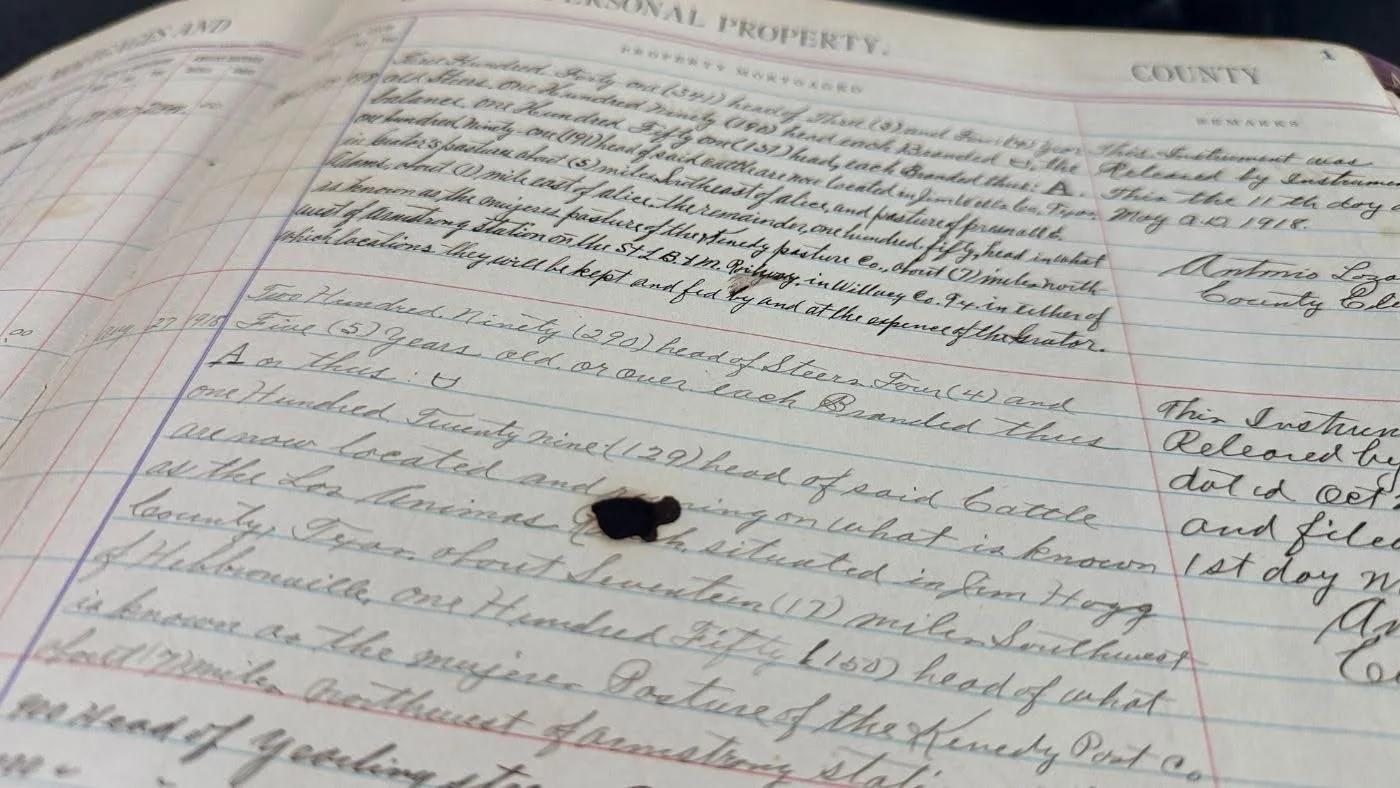 MORTGAGES AND
PERSONAL PROPERTY.
COUNTY
1
PROPERTY MORTGAGED
REMARKS
Three Hundred Forty one (341) head of Three (3) and Four (4) year
old Steers, one Hundred Ninety (190) head each Branded ᴗ, the
balance, one Hundred Fifty one (151) head, each Branded thus: A.
one hundred ninety-one (191) head of said cattle are now located in Jim Wells Co, Texas
in pasture about (5) miles Southeast of alice, and pasture of
Adams, about (1) mile east of alice. the remainder, one hundred fifty, head in what
is known as the mujeres pasture of the Kenedy pasture Co., about (7) miles north
west of Armstrong Station on the St L B & M. Railway, in Willacy Co. Tx. in either of
which locations they will be kept and fed by and at the expence of the Grator.
This Instrument was
Released by Instrume
This the 11th day
May A.D. 1918.
Antonio Loza
County Cle
.00
27 1918
Two Hundred Ninety (290) head of Steers Four (4) and
Five (5) Years old or over each Branded thus
A or thus: ᴗ
one Hundred Twenty nine (129) head of said Cattle
are now located and ning on what is known
as the Los Animas h situated in Jim Hogg
County, Texas about Seventeen (17) miles Southwest
of Hebbronville, one Hundred Fifty (150) head of what
is known as the mujeres Pasture of the Kenedy Past Co
about (7) miles northwest of armstrong stati
Head of yearling ste
This Instrum
Released by
dated Oct
and filed
1st day N
An
Co